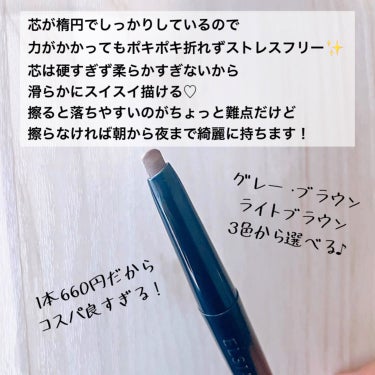 芯が楕円でしっかりしているので
力がかかってもポキポキ折れずストレスフリー✨
芯は硬すぎず柔らかすぎないから
滑らかにスイスイ描ける♡
擦ると落ちやすいのがちょっと難点だけど
擦らなければ朝から夜まで綺麗に持ちます！
グレー・ブラウン
ライトブラウン
3色から選べる♪
1本660円だから
コスパ良すぎる！